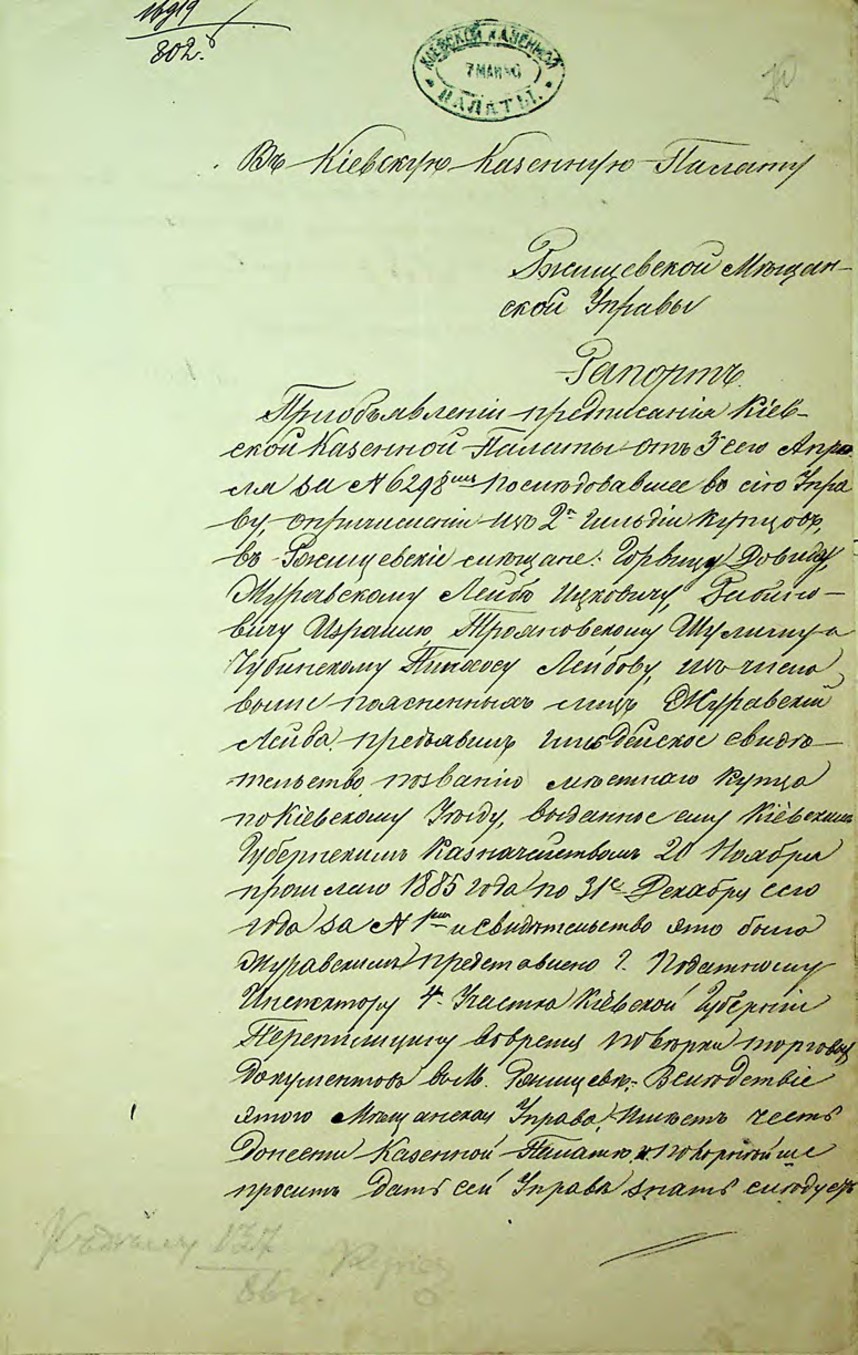 802.
КІЕВСКОЙ КАЗЕННОЙ
7 МАЯ
ПАЛАТЫ.
Въ Кіевскую Казенную Палату
Ржищевской Мѣщан-
ской Управы
Рапортъ.
При объявленіи предписанія Кіев-
ской Казенной Палаты отъ 3 сего Апрѣ-
ля за N 6298 послѣдовавшее въ сію Упра-
ву, о причисленіи изъ 2й гильдіи купцовъ,
въ Ржищевскіе мѣщане: Горвицу Довиду,
Журавскому Лейбѣ Ицковичу, Рабино-
вичу Израилю, Трояновскому Шулиму и
Чубинскому Пинхосу Лейбову, изъ числа
выше поясненныхъ лицъ Журавскій
Лейба предъявилъ гильдейское свидѣ-
тельство по званію мѣстнаго купца
по Кіевскому Уѣзду, выданное ему Кіевскимъ
Губернскимъ Казначействомъ 20 Ноября
прошлаго 1885 года по 31е Декабря сего
года за N 1мъ и свидѣтельство это было
Журавскимъ представлено Г. Податному
Инспектору 4 Участка Кіевской Губерніи
во время повѣрки торговыхъ
документовъ въ М. Ржищевѣ. Вслѣдствіе
этого Мѣщанская Управа, Имѣетъ честь
донести Казенной Палатѣ и покорнѣйше
проситъ дать сей Управѣ знать слѣдуетъ
137
86 г.